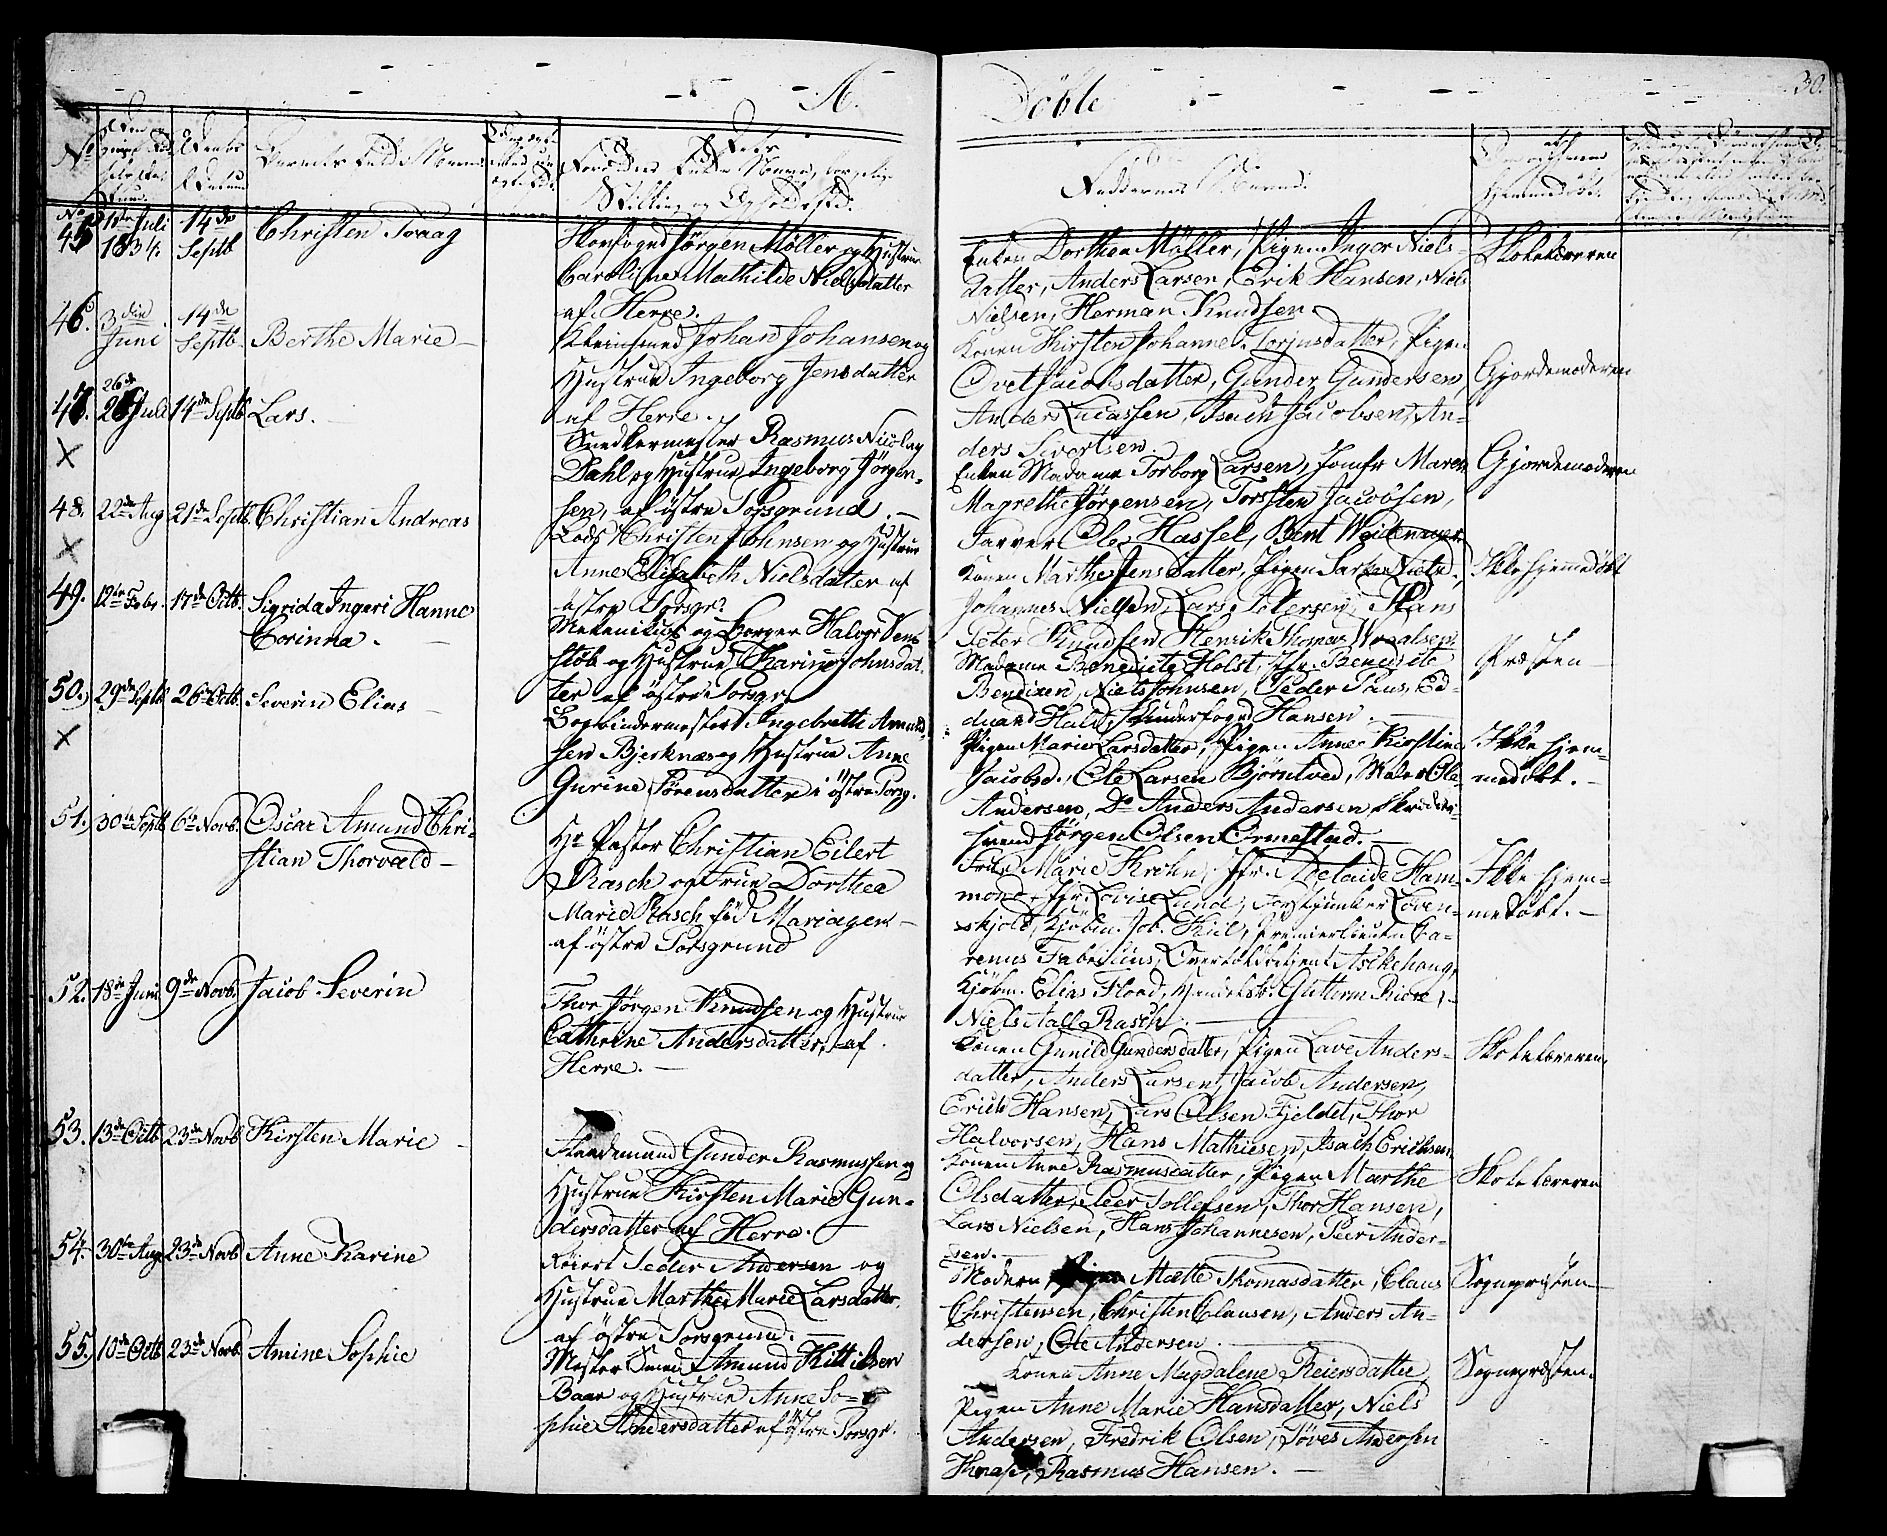 A. Döbte
30.
No
Barnets fulde Navn
Faddernes Navne.
No
45
11te Juli
1834.
14de
Septb
Christen Toraag
Skovfoged Jörgen Möller og Hustrue
Caroline Mathilde Nielsdatter
af Herre.
Enken Dorthea Möller, Pigen Inger Niels-
datter, Anders Larsen, Erik Hansen, Niels
Nielsen, Herman Knudsen.
Skolelæreren
46.
3die
Juni
14de
Septb.
Berthe Marie
Kleinsmed Johan Johansen og
Hustrue Ingeborg Jensdatter
af Herre.
Konen Kirsten Johanne Torjusdatter, Pigen
Jacobsdatter, Gunder Gundersen,
Anders Lucassen, Isach Jacobsen, An-
ders Sivertsen
Gjordemoderen
47.
26de
Juli
14de Septb
Lars.
Snedkermester Rasmus Nicolay
Dahl og Hustrue Ingeborg Jörgen-
sen, af östre Porsgrund.
Enken Madame Torborg Larsen, Jomfr Maren
Magrethe Jörgensen, Torsten Jacobsen,
Farver Ole Hassel, Bent Weidemayer
Gjordemoderen
48.
22de Aug
21de Septb.
Christian Andreas
Lods Christen Johnsen og Hustrue
Anne Elisabeth Nielsdatter af
östre Porsgr.
Konen Marthe Jensdatter, Pigen Nielsd.,
Johannes Nielsen, Lars Petersen, Hans
Peter Knudsen Henrik Thomas
Ikke hjemmedöbt
49.
12te Febr.
17de Octb.
Sigrida Ingeri Hanne
Corinna.
Mekanikus og Borger Halvor
og Hustrue Karine Johnsdat-
ter af östre Porsgr.
Madame Benedicte Holst, Jfr. Benedicte
Bendixen, Niels Johnsen, Peder Paus, Ed-
duard Hald, Hansen.
Præsten
50.
29de Septb
26de Octb.
Severin Elias
Bogbindermester Ingebreth Amund-
sen Bjerknæs og Hustrue Anne
Gurine Sörensdatter i östre Porsg.
Pigen Marie Larsdatter, Pigen Anne Kirstine
Jacobsd., Ole Larsen Björntved, Maler Ole
Andersen, Do Anders Andersen, Skræder-
svend Jörgen Olsen Ormestad.
Ikke hjem-
medöbt.
51.
30te Septb
6te Novb.
Oscar Amund Chri-
stian Thorvald
Hr Pastor Christian Eilert
Rasch og Frue Dorthea
Marie Rasch föd Mariager
af östre Porsgrund
Frue Marie Krohn, Jfr. Adelaide Ham-
mond, Jfr. Lovise Lund, Forstjunker Löven-
skjold, Kjöbm. Job. Kiil, Premierlieutn. Ca-
renus Fabritius, Aschehoug,
Kjöbm. Elias Flood, Handelsb. Guttorm Riise,
Niels Aall Rasch.
Ikke hjem-
medöbt.
52.
18de Juni
9de Novb.
Jacob Severin
Thor Jörgen Knudsen og Hustrue
Cathrine Andersdatter, af
Herre.
Konen Gunild Gundersdatter, Pigen Lave Anders-
datter, Anders Larsen, Jacob Andersen,
Erich Hansen, Lars Olsen Fjeldet, Thor
Halvorsen, Hans Mathiesen, Isach Erichsen
Skolelæreren
53.
13de Octb
23de Novb
Kirsten Marie
Strandmand Gunder Rasmussen og
Hustrue Kirsten Marie Gun-
dersdatter af Herre.
Konen Anne Rasmusdatter, Pigen Marthe
Olsdatter, Peer Tollefsen, Thor Hansen,
Lars Nielsen, Hans Johannesen, Peer Ander-
sen.
Skolelæreren
54.
30te Aug
23de Novb
Anne Karine
Peder Andersen og
Hustrue Marthe Marie Larsdatter,
af östre Porsgrund.
Modern, Mætte Thomasdatter, Claus
Christensen, Christen Clausen, Anders An-
dersen, Ole Andersen.
Sognepræsten
55.
10de Octb
23de Novb.
Amine Sophie
Mester Smed Amund Kittilsen
Baar og Hustrue Anne So-
phie Andersdatter af östre Porsgr.
Konen Anne Magdalene Reiersdatter
Pigen Anne Marie Hansdatter, Niels
Andersen, Fredrik Olsen, Söver Andersen
Rasmus Hansen.
Sognepræsten.